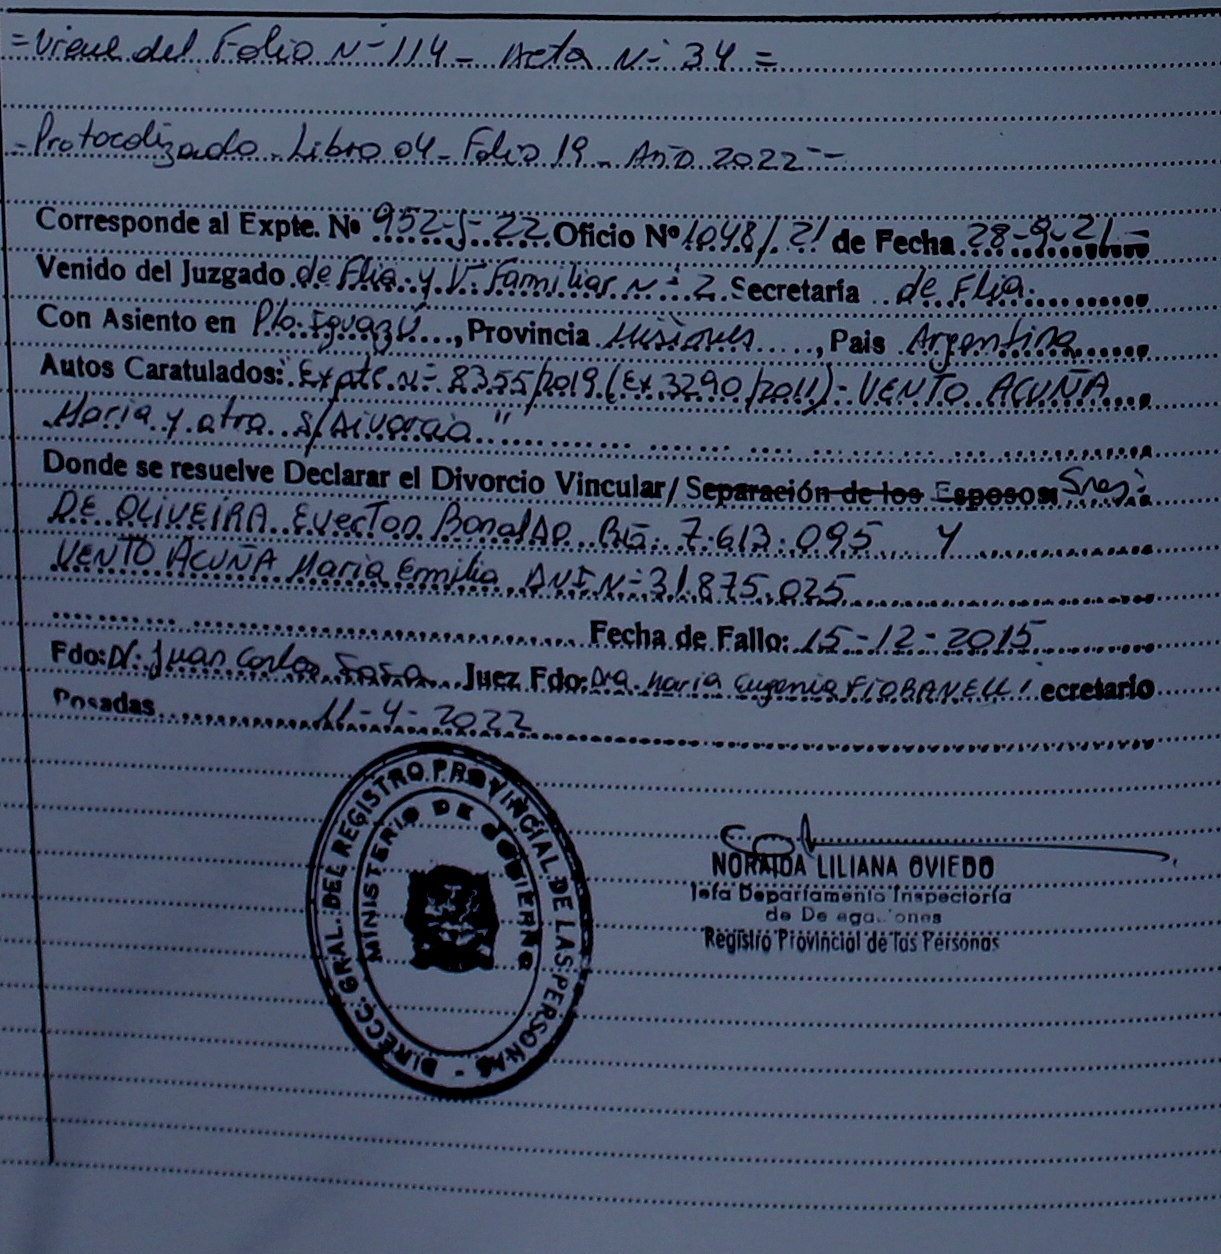 = Viene del Folio N° 114 - Acta N° 34 =
- Protocolizado - Libro 04 - Folio 19 - Año 2022 -
Corresponde al Expte. Nº 952-J-22 Oficio Nº 1048/21 de Fecha 28-9-21 -
Venido del Juzgado de Flia. y V. Familiar N° 2 Secretaría de Flia.
Con Asiento en Pto. Iguazú, Provincia Misiones, Pais Argentina
Autos Caratulados: "Expte. N° 8355/2019 (Ex. 3290/2011) - VENTO ACUÑA
Maria y otro s/Divorcio"
Donde se resuelve Declarar el Divorcio Vincular/ Separación de los Esposos Sres:
DE OLIVEIRA Everton Bonaldo RG: 7.613.095 Y
VENTO ACUÑA Maria Emilia DNI N° 31.875.025
Fecha de Fallo: 15-12-2015
Fdo: Dr. Juan Carlos Sosa Juez Fdo: Dra. Maria Eugenia FIORANELLI ecretario
Posadas 11-4-2022
DIRECC. GRAL. DEL REGISTRO PROVINCIAL DE LAS PERSONAS -
MINISTERIO DE GOBIERNO
NORAIDA LILIANA OVIEDO
Jefa Departamento Inspectoría
de De ega. ones
Registro Provincial de las Personas